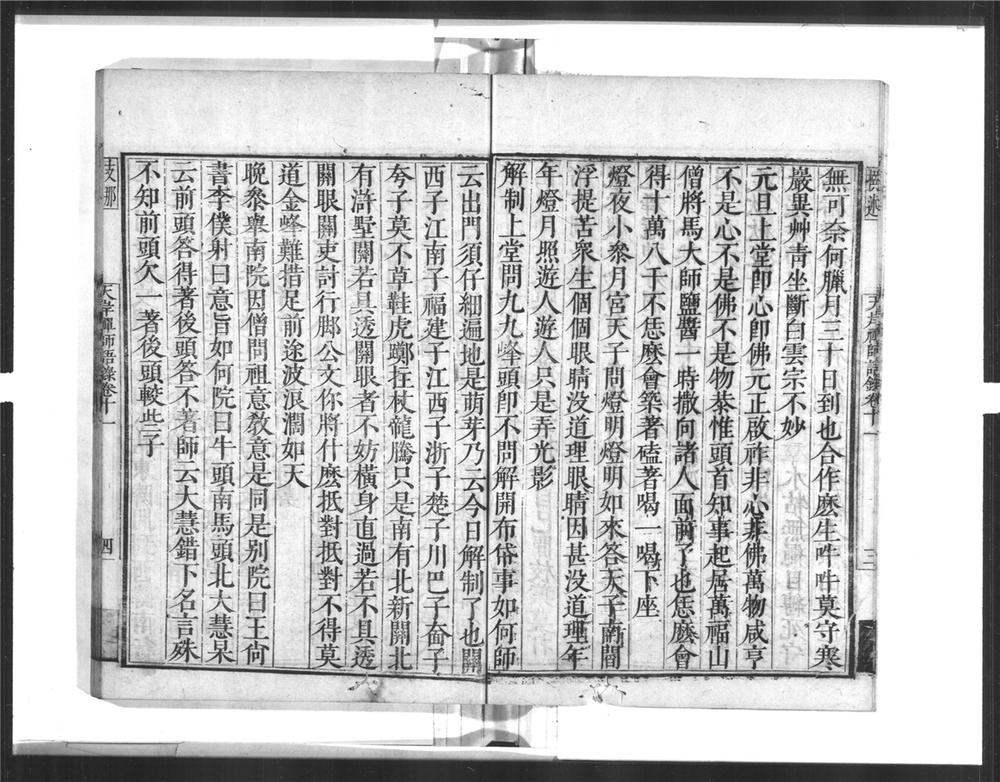 無可奈何臘月三十日到也合作麽生吽吽莫守寒
巖異艸青坐斷白雲宗不妙
元旦上堂即心即佛元正啟祚非心非佛萬物咸亨
不是心不是佛不是物恭惟頭首知事起居萬福山
僧將馬大師鹽醬一時撒向諸人面前了也恁麽會
得十萬八千不恁麽會築著磕著喝一喝下座
燈夜小參月宮天子問燈明燈明如來答天子南閻
浮提苦衆生個個眼睛没道理眼睛因甚没道理年
年燈月照遊人遊人只是弄光影
解制上堂問九九峰頭即不問解開布帒事如何師
云出門須仔細遍地是萌芽乃云今日解制了也關
西子江南子福建子江西子浙子楚子川巴子奤子
夸子莫不草鞋虎躑拄杖龍騰只是南有北新關北
有滸墅關若具透關眼者不妨橫身直過若不具透
關眼關吏討行脚公文你將什麽抵對抵對不得莫
道金峰難措足前途波浪濶如天
晚參舉南院因僧問祖意教意是同是别院曰王尙
書李僕射曰意旨如何院曰牛頭南馬頭北大慧杲
云前頭答得著後頭答不著師云大慧錯下名言殊
不知前頭欠一著後頭較些子
天岸禪師語錄卷十一
四
三